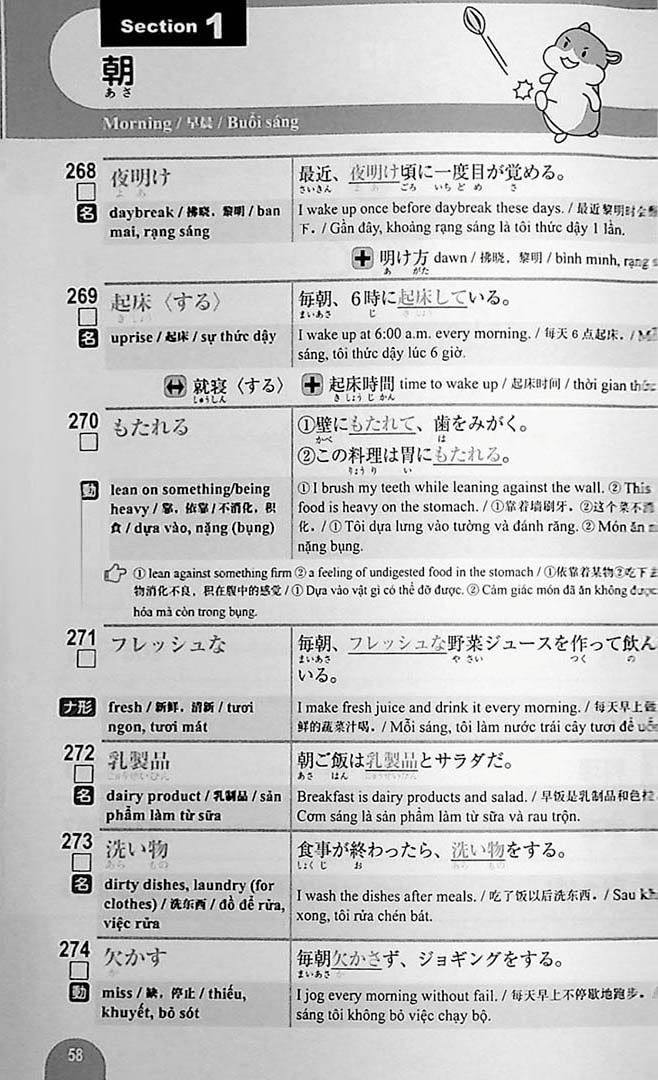 Section 1
朝
あさ
Morning / 早晨 / Buổi sáng
268
夜明け
よ あ
最近、夜明け頃に一度目が覚める。
さいきん よ あ ごろ いちど め さ
名
daybreak / 拂晓，黎明 / ban
mai, rạng sáng
I wake up once before daybreak these days. / 最近黎明时会
下。/ Gần đây, khoảng rạng sáng là tôi thức dậy 1 lần.
+ 明け方 dawn / 拂晓，黎明 / bình minh, rạng
あ がた
269
起床〈する〉
きしょう
毎朝、6時に起床している。
まいあさ じ きしょう
名
uprise / 起床 / sự thức dậy
I wake up at 6:00 a.m. every morning. / 每天 6 点起床。/
sáng, tôi thức dậy lúc 6 giờ.
↔ 就寝〈する〉 + 起床時間 time to wake up / 起床时间 / thời gian thức
しゅうしん きしょうじかん
270
もたれる
①壁にもたれて、歯をみがく。
かべ は
②この料理は胃にもたれる。
りょうり い
動
lean on something/being
heavy / 靠，依靠/不消化，积
食 / dựa vào, nặng (bụng)
① I brush my teeth while leaning against the wall. ② This
food is heavy on the stomach. / ①靠着墙刷牙。②这个菜不
化。/ ① Tôi dựa lưng vào tường và đánh răng. ② Món ăn
nặng bụng.
① lean against something firm ② a feeling of undigested food in the stomach / ①依靠着某物②吃下
物消化不良，积在腹中的感觉 / ① Dựa vào vật gì có thể đỡ được. ② Cảm giác món đã ăn không được
hóa mà còn trong bụng.
271
フレッシュな
毎朝、フレッシュな野菜ジュースを作って飲ん
まいあさ やさい つく の
いる。
ナ形
fresh / 新鲜，清新 / tươi
ngon, tươi mát
I make fresh juice and drink it every morning. / 每天早上
鲜的蔬菜汁喝。/ Mỗi sáng, tôi làm nước trái cây tươi để uống
272
乳製品
にゅうせいひん
朝ご飯は乳製品とサラダだ。
あさ はん にゅうせいひん
名
dairy product / 乳制品 / sản
phẩm làm từ sữa
Breakfast is dairy products and salad. / 早饭是乳制品和色拉
Cơm sáng là sản phẩm làm từ sữa và rau trộn.
273
洗い物
あら もの
食事が終わったら、洗い物をする。
しょくじ お あら もの
名
dirty dishes, laundry (for
clothes) / 洗东西 / đồ để rửa,
việc rửa
I wash the dishes after meals. / 吃了饭以后洗东西。/ Sau
xong, tôi rửa chén bát.
274
欠かす
か
毎朝欠かさず、ジョギングをする。
まいあさ か
動
miss / 缺，停止 / thiếu,
khuyết, bỏ sót
I jog every morning without fail. / 每天早上不停歇地跑步。
sáng tôi không bỏ việc chạy bộ.
58